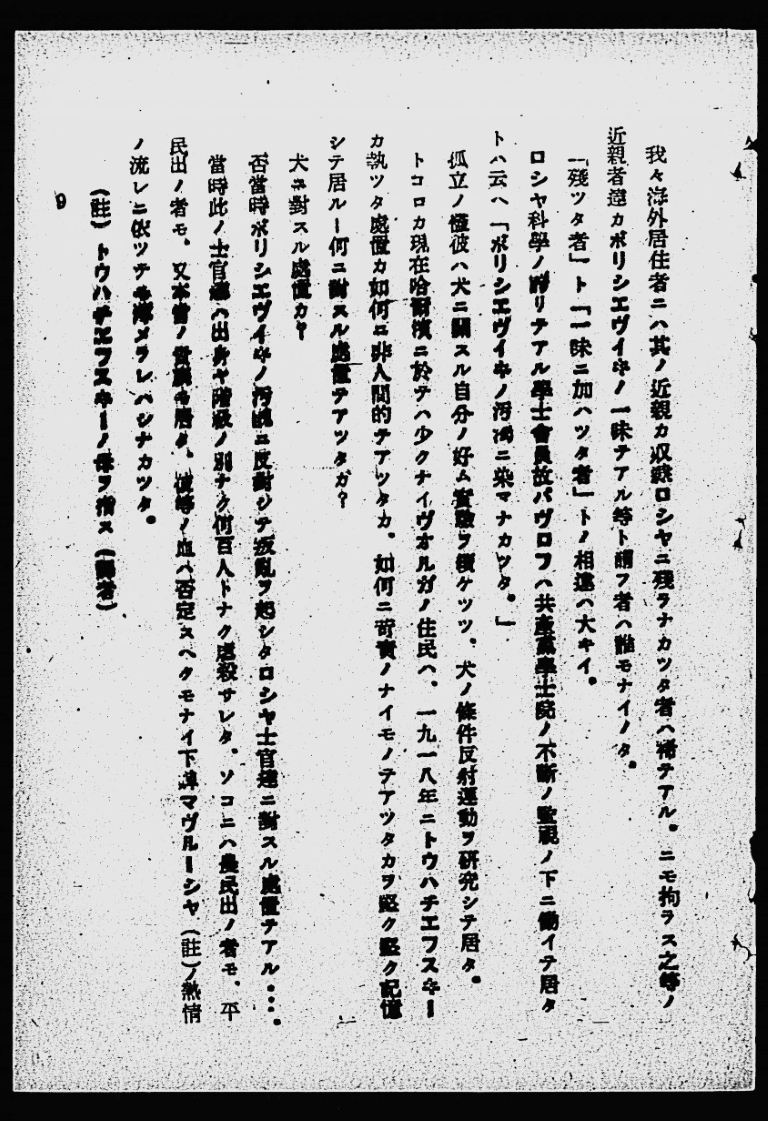 我々海外居住者ニハ其ノ近親カ収容ロシヤニ残ラナカツタ者ハ稀テアル。ニモ拘ラス之等ノ
近親者達カボリシエヴイキノ一味テアル等ト謂フ者ハ誰モナイノタ。
「残ツタ者」ト「一味ニ加ハツタ者」トノ相違ハ大キイ。
ロシヤ科學ノ誇リテアル學士會員故パヴロフハ共產黨學士院ノ不斷ノ監視ノ下ニ働イテ居タ
トハ云ヘ「ボリシエヴイキノ汚濁ニ染マナカツタ。」
孤立ノ儘彼ハ犬ニ關スル自分ノ好ム實驗ヲ續ケツツ、犬ノ條件反射運動ヲ研究シテ居タ。
トコロカ現在哈爾濱ニ於テハ少クナイヴオルガノ住民ハ、一九一八年ニトウハチエフスキー
カ執ツタ處置カ如何ニ非人間的テアツタカ。如何ニ苛責ノナイモノテアツタカヲ堅ク堅ク記憶
シテ居ルー何ニ對スル處置テアツタカ?
犬ニ對スル處置カ?
否當時ボリシエヴイキノ汚 ニ反對シテ叛亂ヲ起シタロシヤ士官達ニ對スル處置テアル・・・。
當時此ノ士官達ハ出身ヤ階級ノ別ナク何百人トナク虐殺サレタ。ソコニハ農民出ノ者モ、平
民出ノ者モ、又本當ノ貴族モ居タ、彼等ノ血ハ否定スヘクモナイ下婢マヴルーシヤ(註)ノ熱情
ノ流レニ依ツテモ薄メラレハシナカツタ。
(註)トウハチエフスキーノ母ヲ指ス(譯者)
9